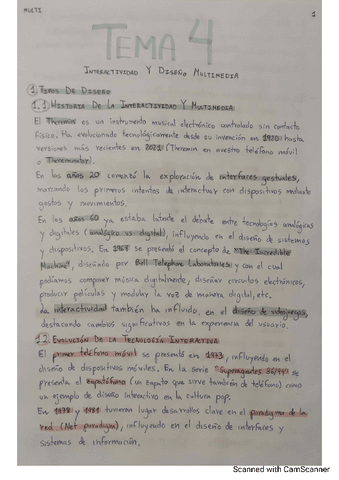 MULTI
1
TEMA 4
INTERACTIVIDAD Y DISEÑO MULTIMEDIA
1. TIPOS DE DISEÑO
1.1. HISTORIA DE LA INTERACTIVIDAD Y MULTIMEDIA
El Theremin es un instrumento musical electrónico controlado sin contacto
físico. Ha evolucionado tecnológicamente desde su invención en 1920 hasta
versiones más recientes en 2021 (Theremin en nuestro teléfono móvil
o Thereminator).
En los años 20 comenzó la exploración de interfaces gestuales,
marcando los primeros intentos de interactuar con dispositivos mediante
gestos y movimientos.
En los años 60 ya estaba latente el debate entre tecnologías analógicas
y digitales (analógico vs digital), influyendo en el diseño de sistemas
y dispositivos. En 1968 se presentó el concepto de "The Incredible
Machine", diseñado por Bell Telephone Laboratories y con el cual
podíamos componer música digitalmente, diseñar circuitos electrónicos,
producir películas y modular la voz de manera digital, etc.
La interactividad también ha influido, en el diseño de videojuegos,
destacando cambios significativos en la experiencia del usuario.
1.2. EVOLUCIÓN DE LA TECNOLOGÍA INTERACTIVA
El primer teléfono móvil se presentó en 1973, influyendo en el
diseño de dispositivos móviles. En la serie "Superagente 86/99" se
presenta el zapatófono (un zapato que sirve también de teléfono) como
un ejemplo de diseño interactivo en la cultura pop.
En 1979 y 1981 tuvieron lugar desarrollos clave en el paradigma de la
red (Net paradigm), influyendo en el diseño de interfaces y
sistemas de información.
Scanned with CamScanner